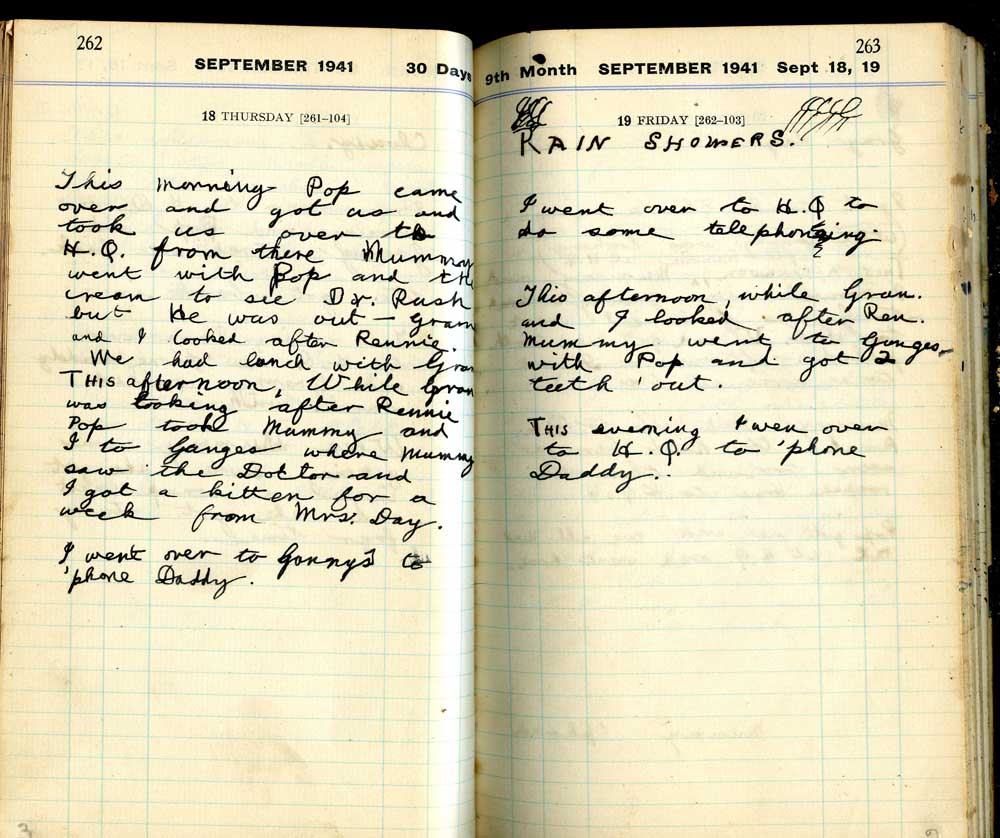 262
SEPTEMBER 1941 30 Days
18 THURSDAY [261–104]
This morning Pop came
over and got us and
took us over to
H.Q. from there Mummy
went with Pop and the
cream to see Dr. Rush
but He was out – Gran
and I looked after Rennie.
We had lunch with Gran
THIS afternoon, While Gran
was looking after Rennie
Pop took Mummy and
I to Ganges where Mummy
saw the Doctor and
I got a kitten for a
week from Mrs. Day.
I went over to to
'phone Daddy.
263
9th Month SEPTEMBER 1941 Sept 18, 19
19 FRIDAY [262–103]
RAIN SHOWERS.
I went over to H.Q to
do some telephoneing.
This afternoon, while Gran.
and I looked after Ren.
Mummy went to Ganges
with Pop and got 2
teeth out.
THIS evening I wen over
to H.Q. to 'phone
Daddy.